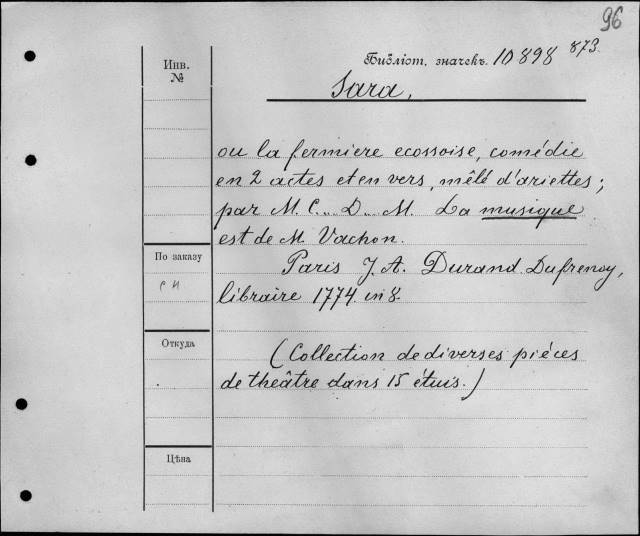 96
Инв. №
Библіот. значекъ. 10898 873.
Sara,
ou la fermiere ecossoise, comédie
en 2 actes et en vers, mêlé d'ariettes;
par M. C.. D.. M. La musique
est de M. Vachon.
По заказу
Paris J. A. Durand. Dufrenoy,
libraire 1774. in 8.
Откуда
(Collection de diverses piéces
de theâtre dans 15 étuis.)
Цѣна